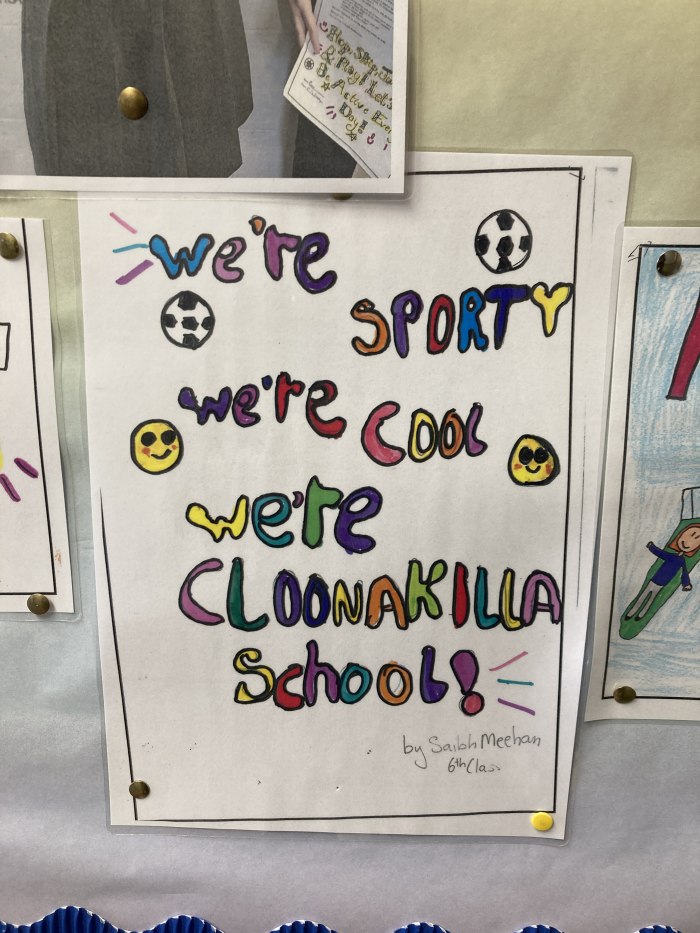 Hop, Skip, Ju
& Play! Let's
Be Active Every
Day!
we're
SPORTY
we're COOl
we're
CLOONAKILLA
School!
by Saibh Meehan
6th Class